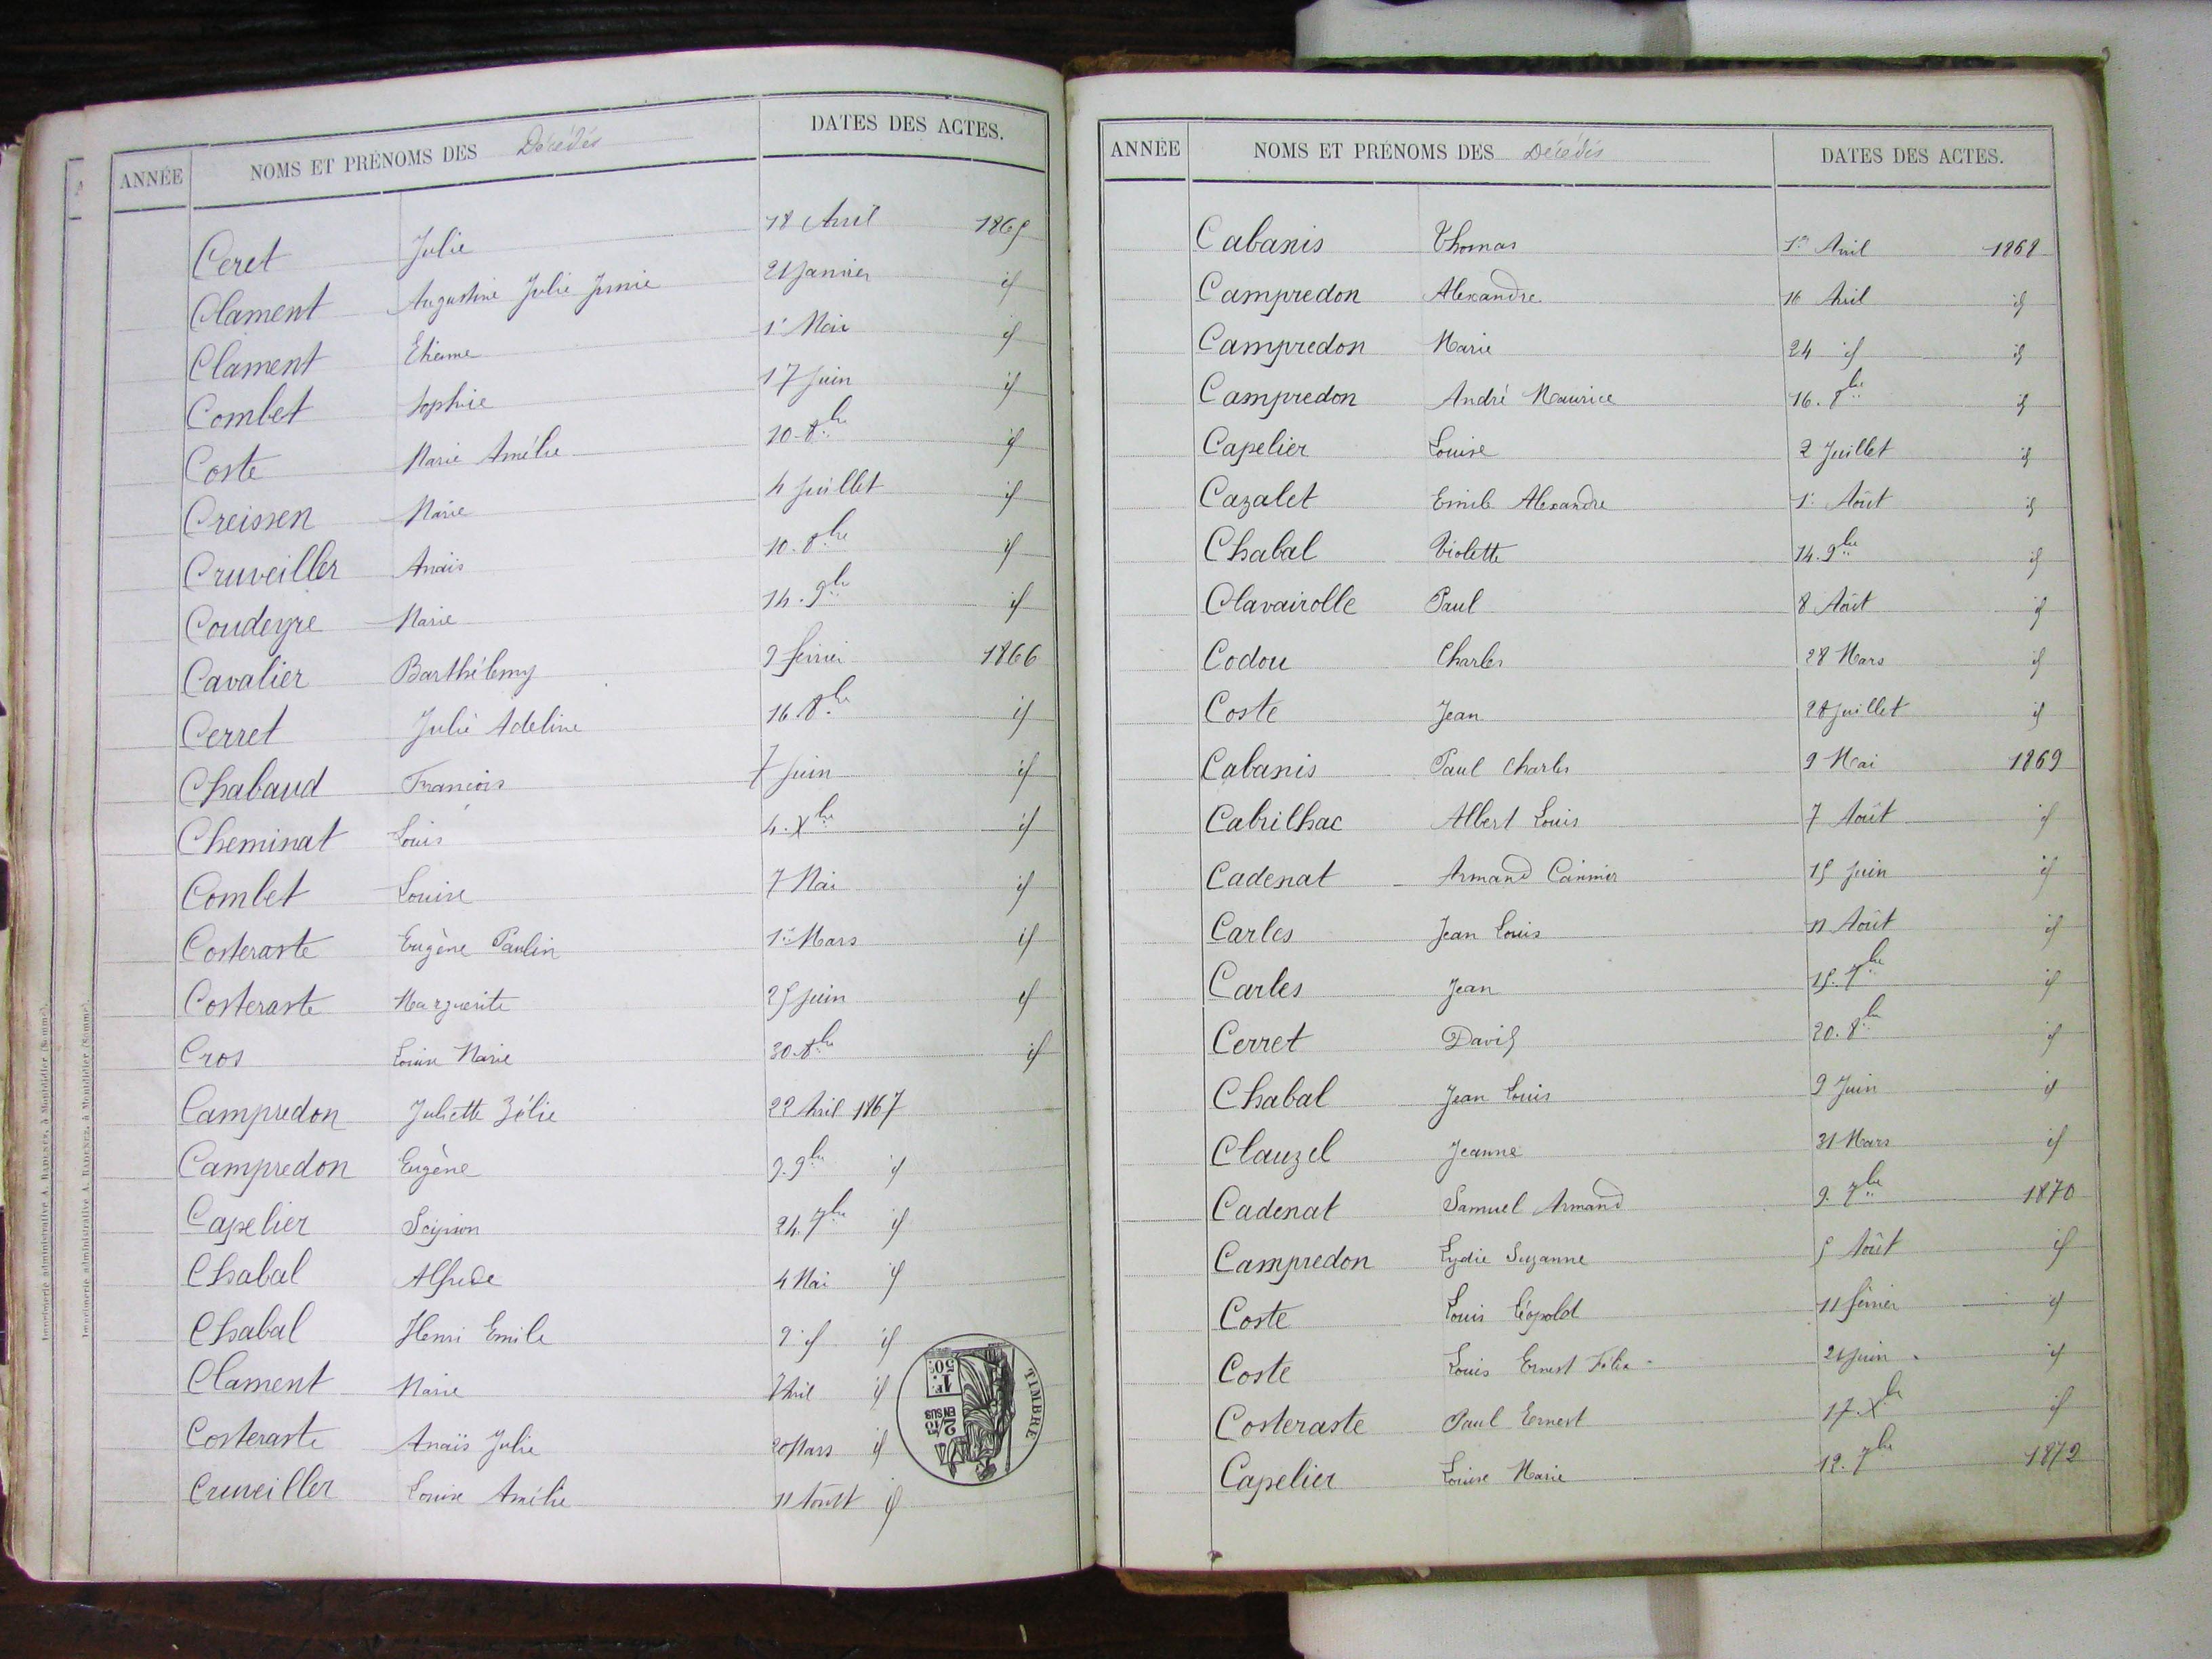 ANNÉE NOMS ET PRÉNOMS DES Décédés DATES DES ACTES.
Ceret Julie 18 Avril 1865
Clament Augustine Julie Jennie 21 Janvier id
Clament Etienne 1er Mai id
Combet Sophie 17 Juin id
Coste Marie Amélie 10. 8bre id
Creissen Marie 4 Juillet id
Cruveiller Anaïs 10. 8bre id
Coudeyre Marie 14. 9bre id
Cavalier Barthélemy 9 février 1866
Cerret Julie Adeline 16. 8bre id
Chabaud Francois 7 Juin id
Cheminat Louis 4. Xbre id
Combet Louise 7 Mai id
Costeraste Eugène Paulin 1er Mars id
Costeraste Marguerite 25 Juin id
Cros Louise Marie 30. 8bre id
Campredon Juliette Zélie 22 Avril 1867
Campredon Eugène 9. 9bre id
Capelier Scipion 24. 7bre id
Chabal Alfrede 4 Mai id
Chabal Henri Emile 9 id id
Clament Marie 7 Avril id
Costeraste Anaïs Julie 20 Mars id
Cruveiller Louise Amélie 11 Août id
TIMBRE
1F. 50c.
2/10 EN SUS
Imprimerie administrative A. RADENEZ, à Montdidier (Somme).
Imprimerie administrative A. RADENEZ, à Montdidier (Somme).
ANNÉE NOMS ET PRÉNOMS DES Décédés DATES DES ACTES.
Cabanis Thomas 1er Avril 1868
Campredon Alexandre 16 Avril id
Campredon Marie 24 id id
Campredon André Maurice 16. 8bre id
Capelier Louise 2 Juillet id
Cazalet Emile Alexandre 1er Août id
Chabal Violette 14. 9bre id
Clavairolle Paul 8 Août id
Codou Charles 28 Mars id
Coste Jean 28 Juillet id
Cabanis Paul Charles 9 Mai 1869
Cabrilhac Albert Louis 7 Août id
Cadenat Armand Casimir 15 Juin id
Carles Jean Louis 11 Août id
Carles Jean 15. 7bre id
Cerret David 20. 8bre id
Chabal Jean Louis 9 Juin id
Clauzel Jeanne 31 Mars id
Cadenat Samuel Armand 9. 7bre 1870
Campredon Lydie Suzanne 5 Août id
Coste Louis Léopold 11 février id
Coste Louis Ernest Félix 21 Juin id
Costeraste Paul Ernest 17. Xbre id
Capelier Louise Marie 12. 7bre 1872